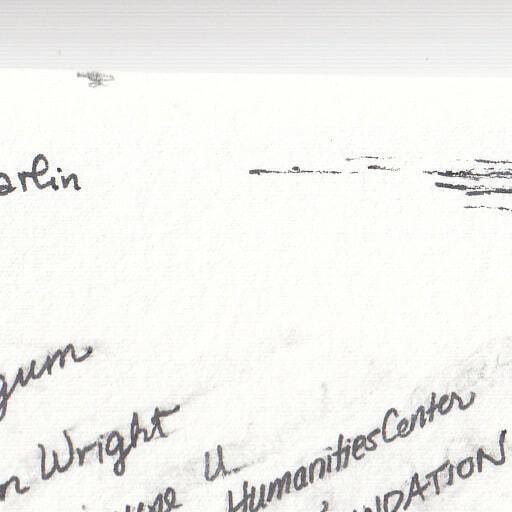 arlin
gum
n Wright
U
Humanities Center
NDATION